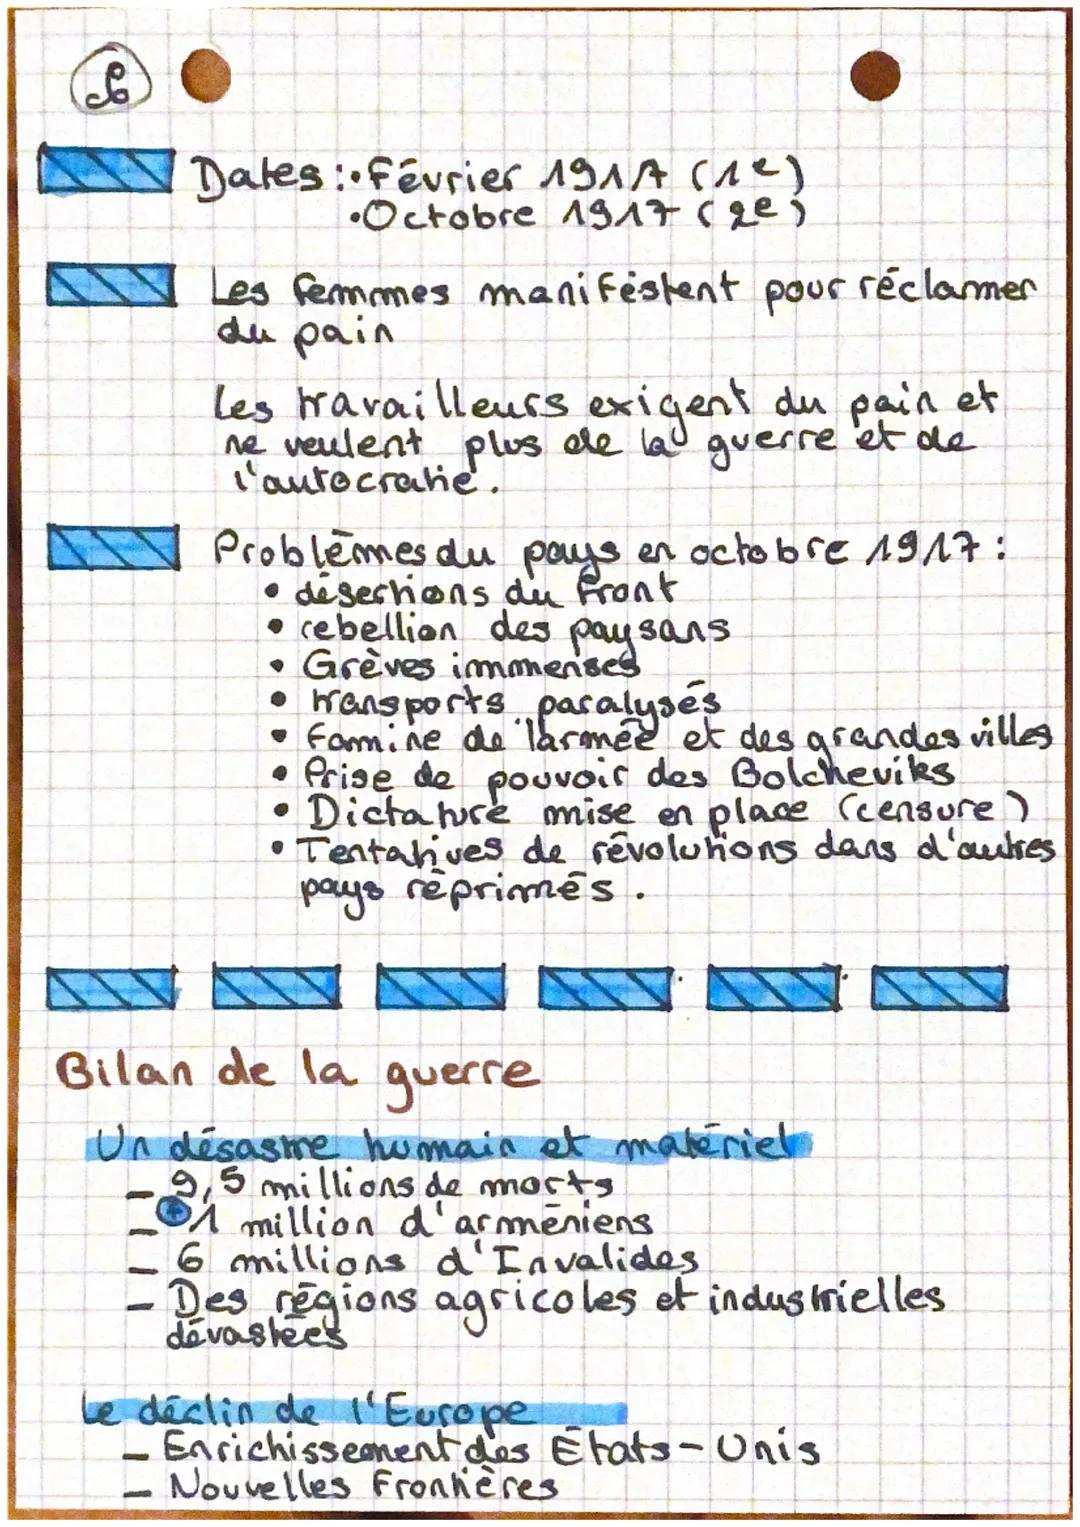 Dates : • Février 1917 (1e)
• Octobre 1917 (2e)
Les femmes manifestent pour réclamer
du pain
Les travailleurs exigent du pain et
ne veulent plus de la guerre et de
l'autocratie.
Problèmes du pays en octobre 1917 :
• désertions du front
• rebellion des paysans
• Grèves immenses
• transports paralysés
• famine de l'armée et des grandes villes
• Prise de pouvoir des Bolcheviks
• Dictature mise en place (censure)
• Tentatives de révolutions dans d'autres
pays réprimés.
Bilan de la guerre
Un désastre humain et matériel
- 9,5 millions de morts
- + 1 million d'arméniens
- 6 millions d'Invalides
- Des régions agricoles et industrielles
dévastées
Le déclin de l'Europe
- Enrichissement des États-Unis
- Nouvelles Frontières